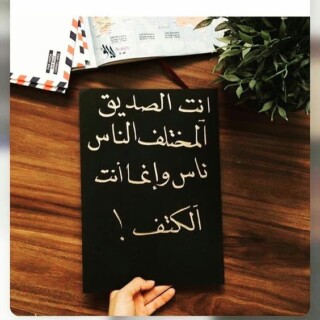 انت الصديق
المختلف الناس
ناس وإنما أنت
الكتف !